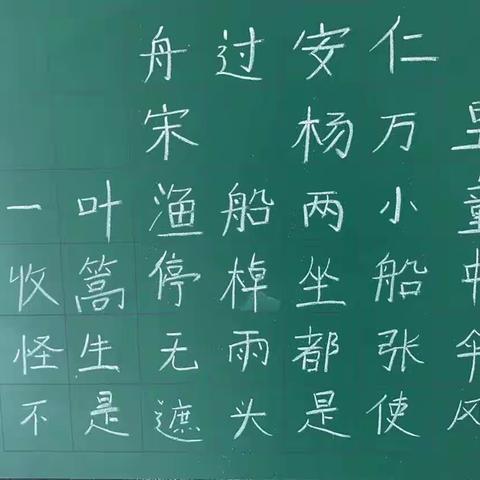 舟过安仁
宋 杨万里
一叶渔船两小童
收篙停棹坐船中
怪生无雨都张伞
不是遮头是使风